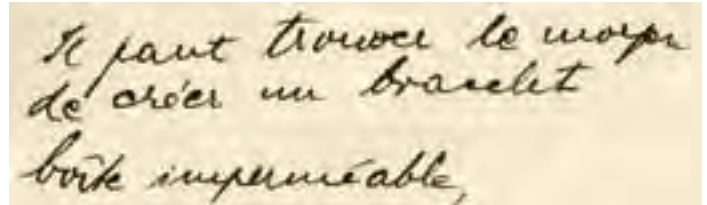 Il faut trouver le moyen
de créer un bracelet
boîte imperméable,